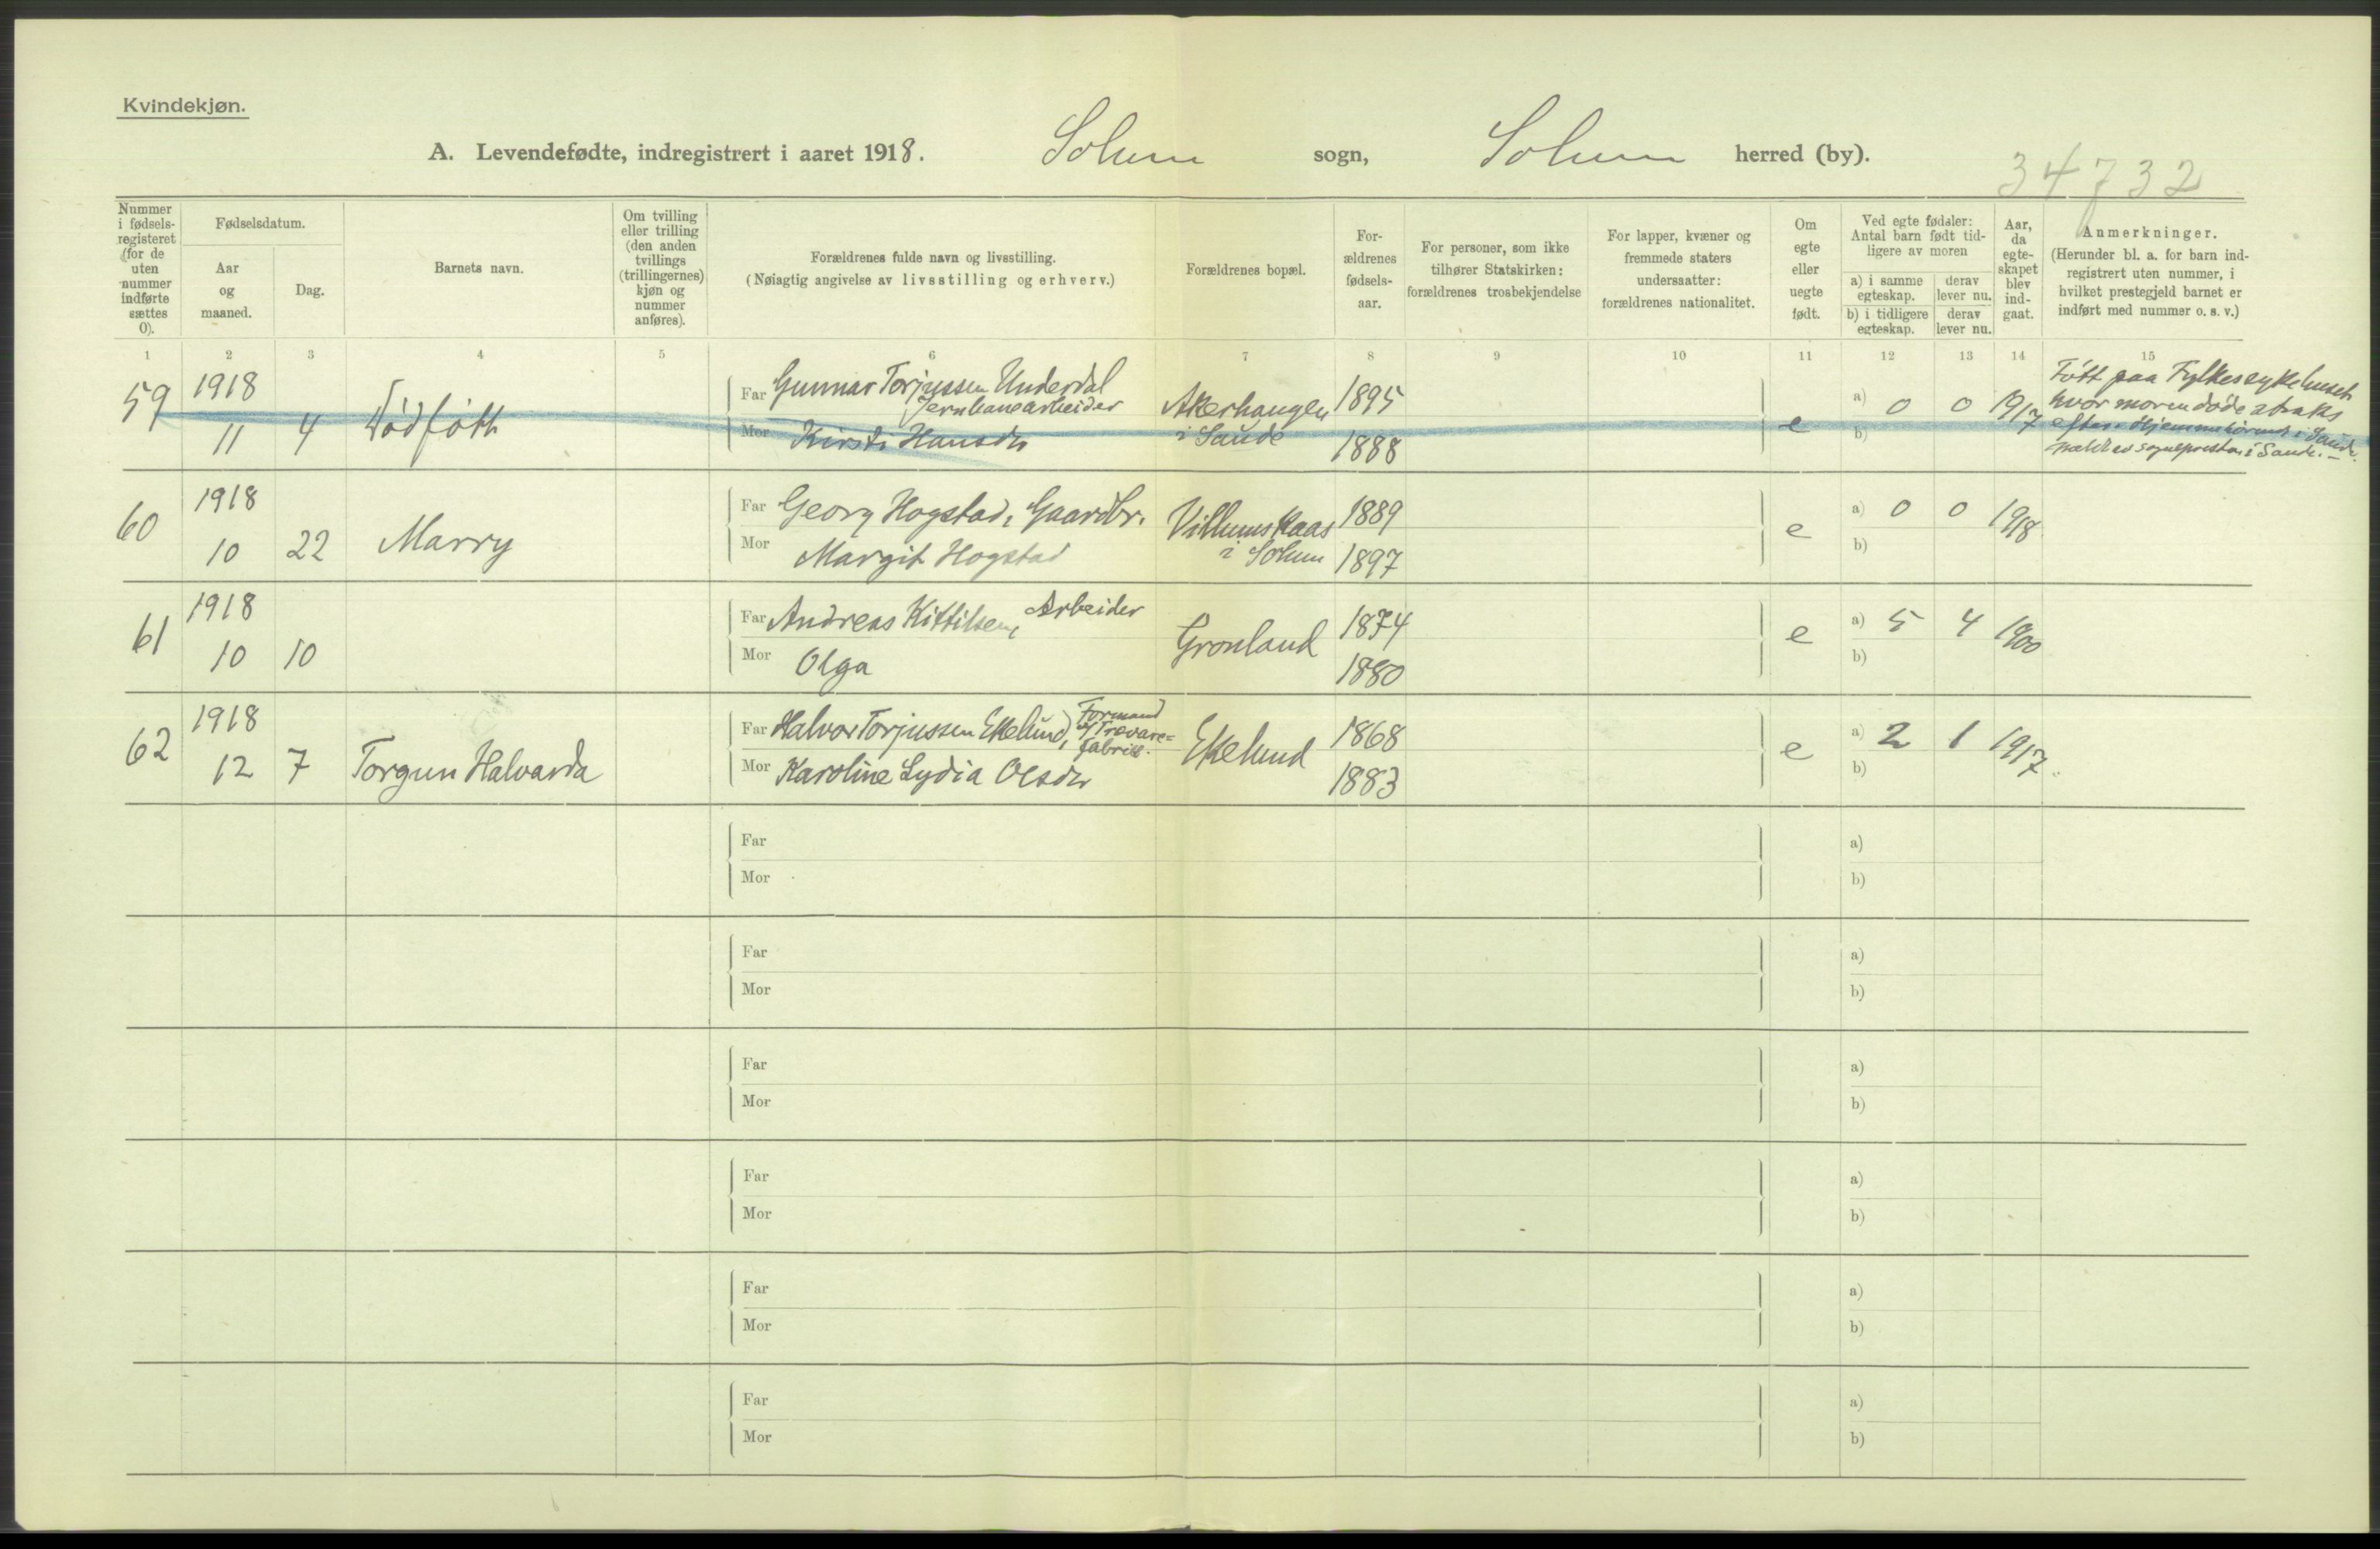 Kvindekjøn.
A. Levendefødte, indregistrert i aaret 1918. Solum sogn, Solum herred (by).
34732
Nummer i fødsels-registeret (for de uten nummer indførte sættes 0).
Fødselsdatum.
Aar og maaned.
Dag.
Barnets navn.
Om tvilling eller trilling (den anden tvillings (trillingernes) kjøn og nummer anføres).
Forældrenes fulde navn og livsstilling.
(Nøiagtig angivelse av livsstilling og erhverv.)
Forældrenes bopæl.
For-ældrenes fødsels-aar.
For personer, som ikke tilhører Statskirken: forældrenes trosbekjendelse
For lapper, kvæner og fremmede staters undersaatter: forældrenes nationalitet.
Om egte eller uegte født.
Ved egte fødsler: Antal barn født tid-ligere av moren
a) i samme egteskap.
derav lever nu.
b) i tidligere egteskap.
derav lever nu.
Aar, da egte-skapet blev ind-gaat.
Anmerkninger.
(Herunder bl. a. for barn ind-registrert uten nummer, i hvilket prestegjeld barnet er indført med nummer o. s. v.)
1 2 3 4 5 6 7 8 9 10 11 12 13 14 15
59 1918 11 4 Dødfött
Far Gunnar Torjussen Underdal
Jernbanearbeider
Mor Kirsti Hansdr
Akerhaugen
i Saude
1895
1888
e a) 0 0 1917
b)
Født paa Fylkessykehuset
hvor moren døde straks
efter. Hjemmehörende i Saude
meldt av sogneprosten i Saude.
60 1918 10 22 Marry
Far Georg Hogstad, Gaardbr.
Mor Margit Hogstad
Villumskaas
i Solum
1889
1897
e a) 0 0 1918
b)
61 1918 10 10
Far Andreas Kittilsen, Arbeider
Mor Olga
Grønland
1874
1880
e a) 5 4 1900
b)
62 1918 12 7 Torgun Halvarda
Far Halvor Torjussen Ekelund, Formand
v/ Trevare=
fabrikk.
Mor Karoline Lydia Olsdr
Ekelund
1868
1883
e a) 2 1 1917
b)
Far a)
Mor b)
Far a)
Mor b)
Far a)
Mor b)
Far a)
Mor b)
Far a)
Mor b)
Far a)
Mor b)